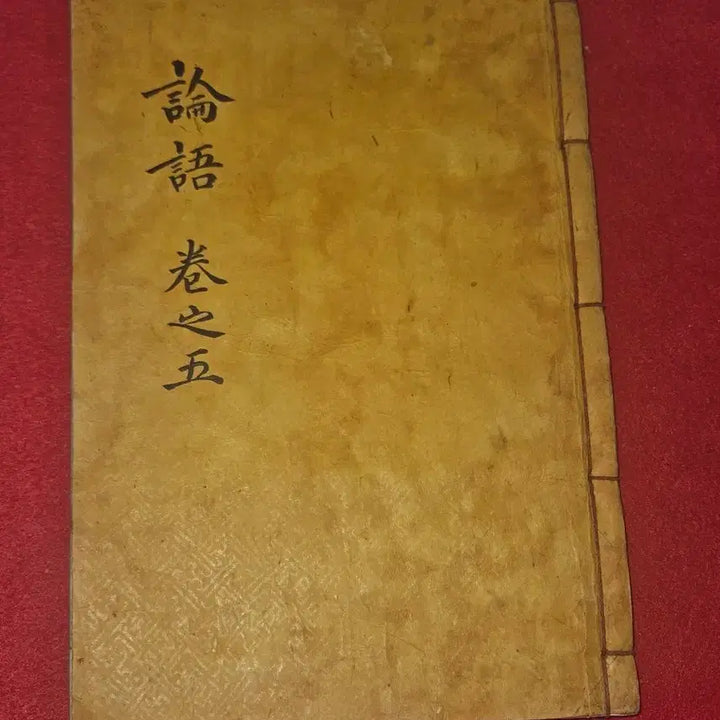 論語 卷之五